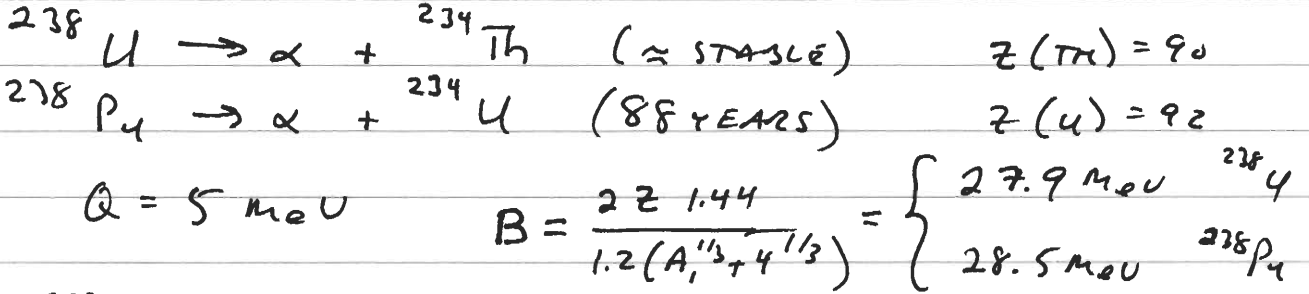 ²³⁸U → α + ²³⁴Th (≈ STABLE) Z(Th) = 90
²³⁸Pu → α + ²³⁴U (88 YEARS) Z(U) = 92
Q = 5 MeV B = 2 Z 1.44 / 1.2(A₁^1/3 + 4^1/3) = { 27.9 MeV ²³⁸U
28.5 MeV ²³⁸Pu